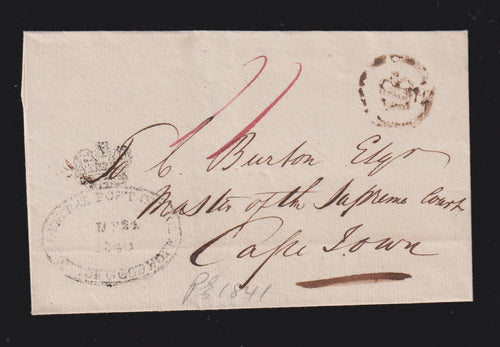 To C. Burton Esqr
Master of the Supreme Court
Cape Town
GENERAL POST OFFICE
22
CAPE OF GOOD HOPE
1841